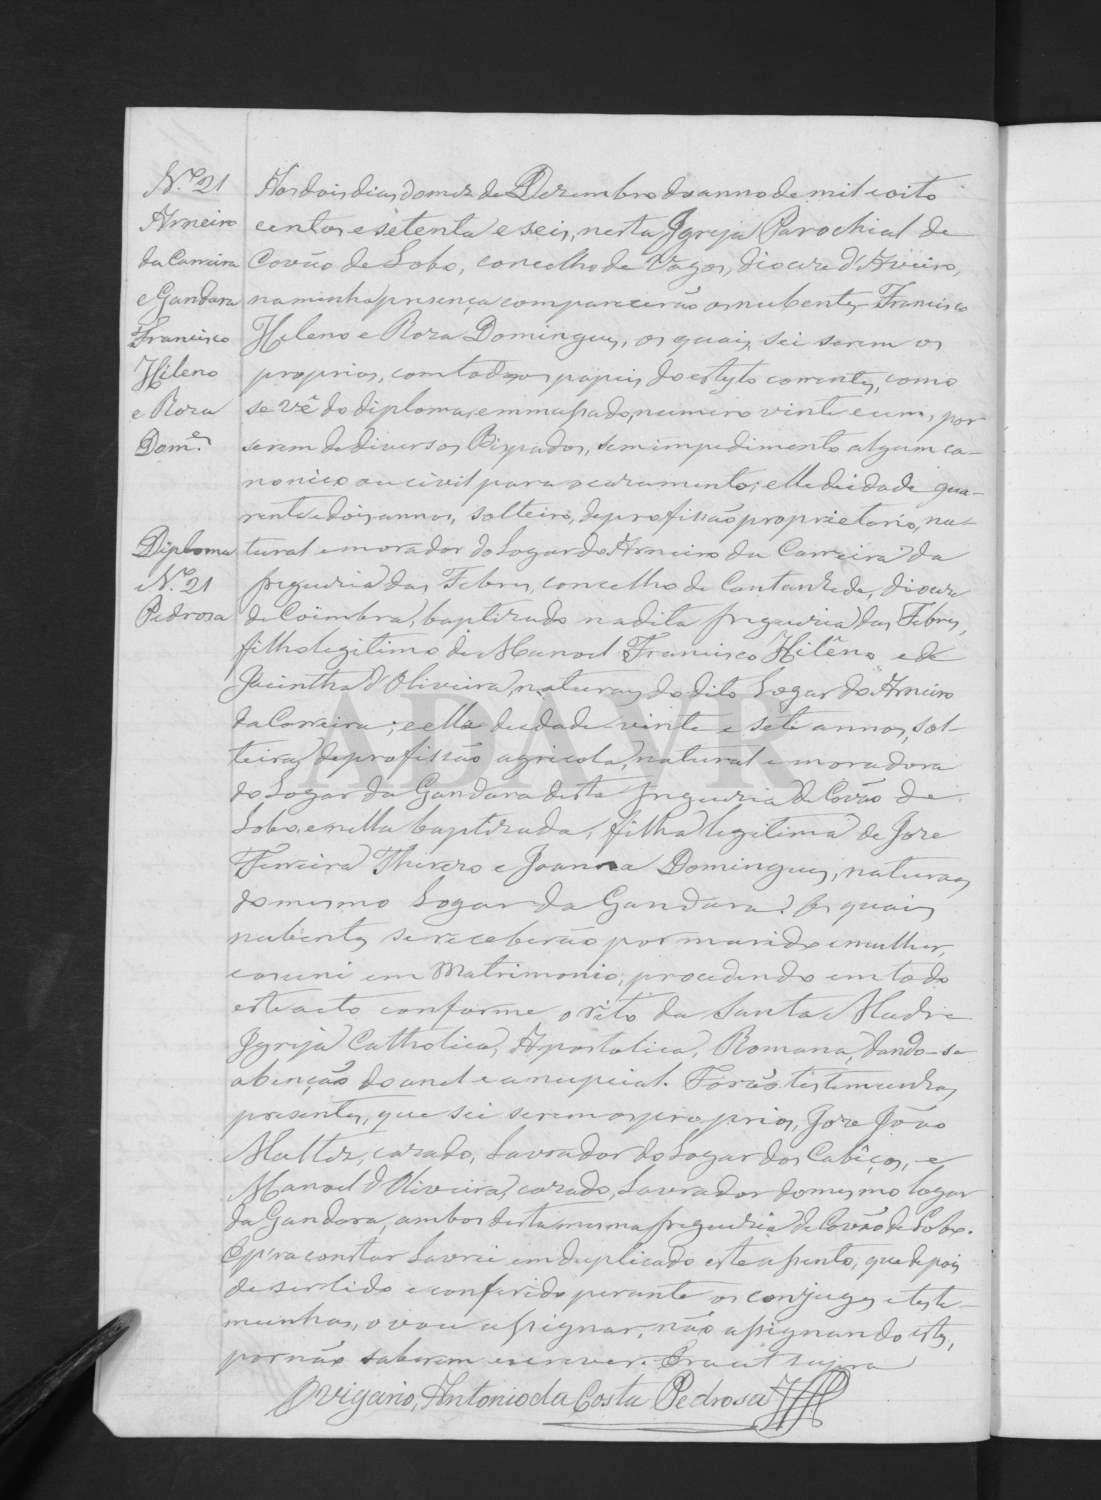 N.º 21
Arneiro
da Carreira
e Gandara
Francisco
Hileno
e Roza
Dom.es
Diploma
N.º 21
Pedrosa
Aos dois dias do mez de Dezembro do anno de mil e oito
centos e setenta e seis, nesta Igreja Parochial de
Covão de Lobo, concelho de Vagos, diocese d'Aveiro,
na minha presença comparecerão os nubentes Francisco
Hileno e Roza Domingues, os quais sei serem os
proprios, com todos os papeis do estylo correntes, como
se vê do diploma, emmassado, numero vinte e um, por
serem de diversos Bispados, sem impedimento algum ca-
nonico ou civil para o casamento; elle de idade qua-
renta e dois annos, solteiro, de profissão proprietario, na-
tural e morador do Logar do Arneiro da Carreira da
freguezia das Febres, concelho de Cantanhede, diocese
de Coimbra, baptizado na dita freguezia das Febres,
filho legitimo de Manoel Francisco Hilêno e de
Jacintha d'Oliveira, naturaes do dito Logar do Arneiro
da Carreira; e ella de idade vinte e sete annos, sol-
teira, de profissão agricola, natural e moradora
do Logar da Gandara desta freguezia de Covão de
Lobo, e nella baptizada, filha legitima de Joze
Ferreira Thivero e Joanna Domingues, naturaes
do mesmo Logar da Gandara. Os quais
nubentes se receberão por marido e mulher,
e os uni em Matrimonio, procedendo em todo
este acto conforme o rito da Santa Madre
Igreja Catholica, Apostolica, Romana, dando-se
a benção do anel e a nupcial. Forão testemunhas
presentes, que sei serem os proprios, Joze João
Maltez, cazado, Lavrador do Logar dos Cabêços, e
Manoel d'Oliveira, cazado, Lavrador do mesmo logar
da Gandara, ambos desta mesma freguezia de Covão de Lobo.
E p'ra constar lavrei em duplicado este assento, que depois
de ser lido e conferido perante os conjuges e teste-
munhas, o vou assignar, não assignando estes,
por não saberem escrever. Era ut supra
O vigario, Antonio da Costa Pedrosa
ADAVR